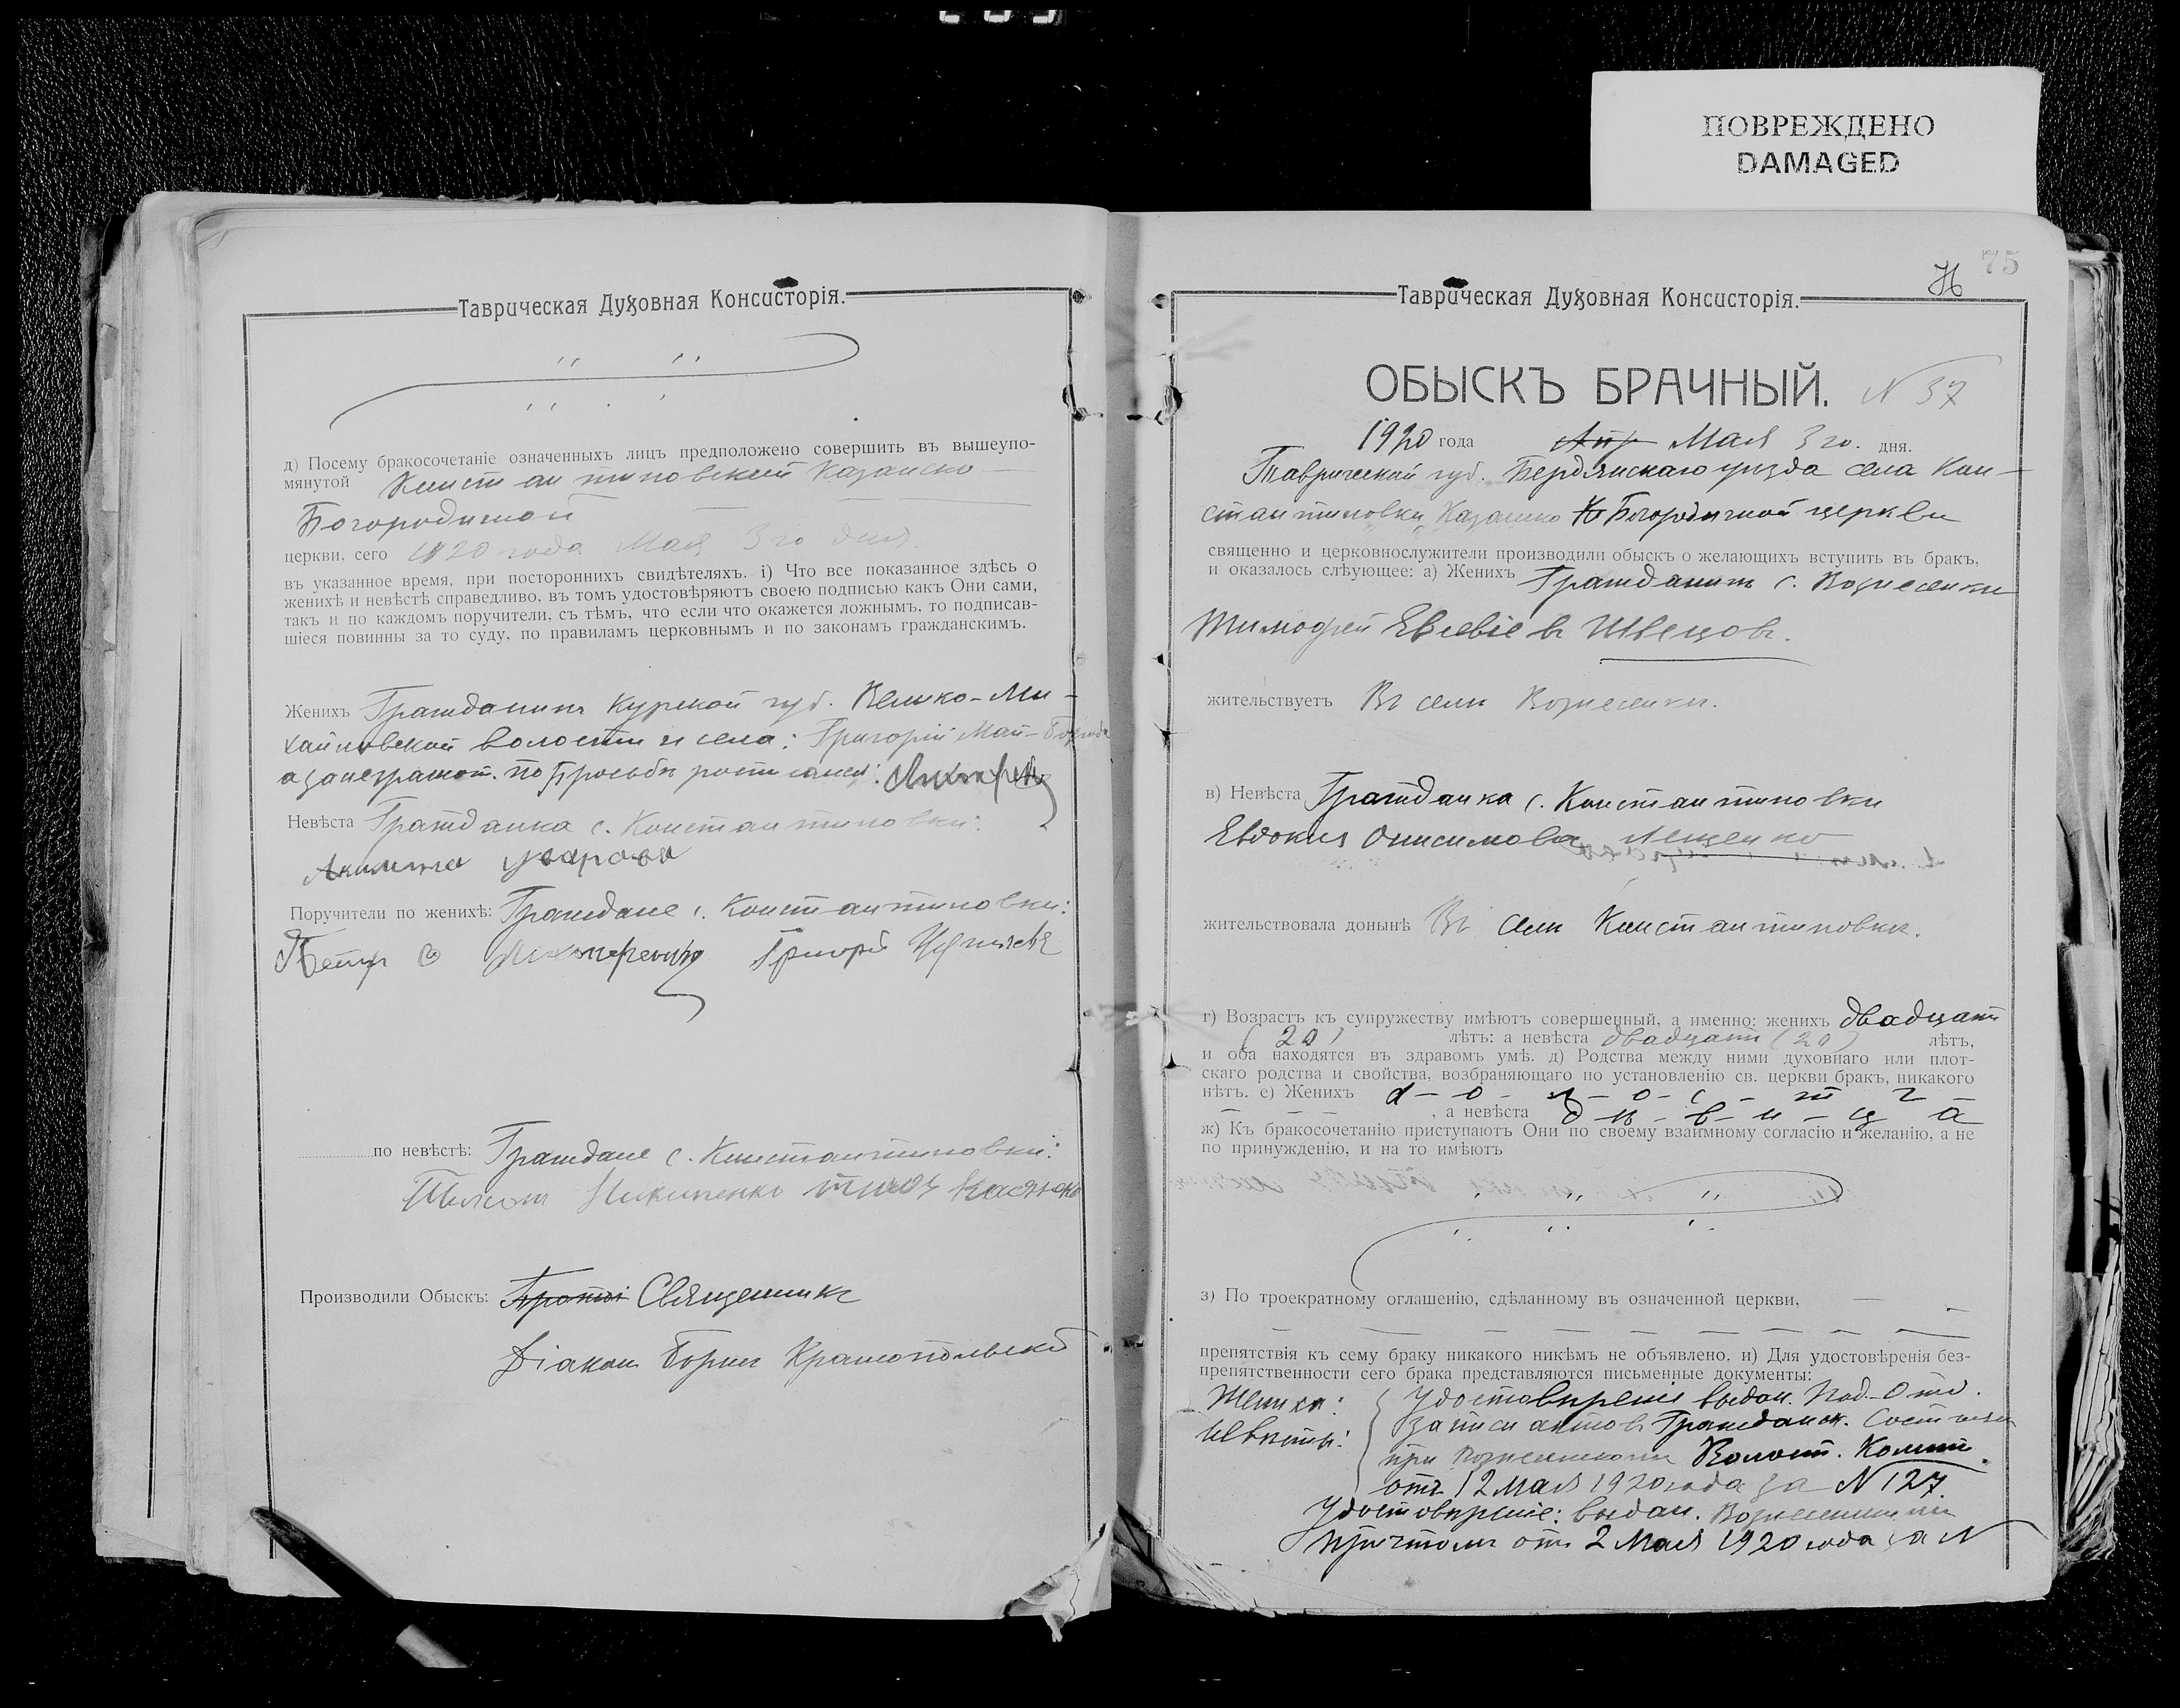 ПОВРЕЖДЕНО
DAMAGED
Таврическая Духовная Консисторія.
д) Посему бракосочетаніе означенныхъ лицъ предположено совершить въ вышеупо-
мянутой Константиновской Казанско-
Богородичной
церкви, сего 1920 года Мая 3го дня.
въ указанное время, при постороннихъ свидѣтеляхъ. і) Что все показанное здѣсь о
женихѣ и невѣстѣ справедливо, въ томъ удостовѣряютъ своею подписью какъ Они сами,
такъ и по каждомъ поручители, съ тѣмъ, что если что окажется ложнымъ, то подписав-
шіеся повинны за то суду, по правиламъ церковнымъ и по законамъ гражданскимъ.
Женихъ Гражданинъ Курской губ. Велико-Ми-
хайловской волости и села: Григорій
а за неграмот. по просьбѣ
Невѣста Гражданка с. Константиновки:
Уварова
Поручители по женихѣ: Граждане с. Константиновки:
Петръ
по невѣстѣ: Граждане с. Константиновки:
Производили Обыскъ: Священникъ
Діаконъ Борисъ Краснопольскій
75
Н
Таврическая Духовная Консисторія.
ОБЫСКЪ БРАЧНЫЙ. N 37
1920 года Апр Мая 3го. дня.
Таврической губ. Бердянскаго уѣзда села Кон-
стантиновки Казанско Богородичной церкви
священно и церковнослужители производили обыскъ о желающихъ вступить въ бракъ,
и оказалось слѣующее: а) Женихъ Гражданинъ с. Вознесенки
Тимофей Евсевіевъ Швецовъ.
жительствуетъ Въ селѣ Вознесенкѣ.
в) Невѣста Гражданка с. Константиновки
Евдокия Онисимова Лещенко
жительствовала донынѣ Въ селѣ Константиновкѣ.
г) Возрастъ къ супружеству имѣютъ совершенный, а именно: женихъ двадцати
(20) лѣтъ: а невѣста двадцати (20) лѣтъ,
и оба находятся въ здравомъ умѣ. д) Родства между ними духовнаго или плот-
скаго родства и свойства, возбраняющаго по установленію св. церкви бракъ, никакого
нѣтъ. е) Женихъ х-о-л-о-с-т-ъ
, а невѣста д-ѣ-в-и-ц-а
ж) Къ бракосочетанію приступаютъ Они по своему взаимному согласію и желанію, а не
по принужденію, и на то имѣютъ
з) По троекратному оглашенію, сдѣланному въ означенной церкви,
препятствія къ сему браку никакого никѣмъ не объявлено. и) Для удостовѣренія без-
препятственности сего брака представляются письменные документы:
Жениха: Удостовѣреніе выдан. Под-Отд.
Невѣсты: Записи актовъ Гражданск. Состоянія
при Вознесенскомъ Волост. Комит.
отъ 2 Мая 1920 года за N 127.
Удостовѣреніе: выдан. Вознесенскимъ
Причтомъ отъ 2 Мая 1920 года за N